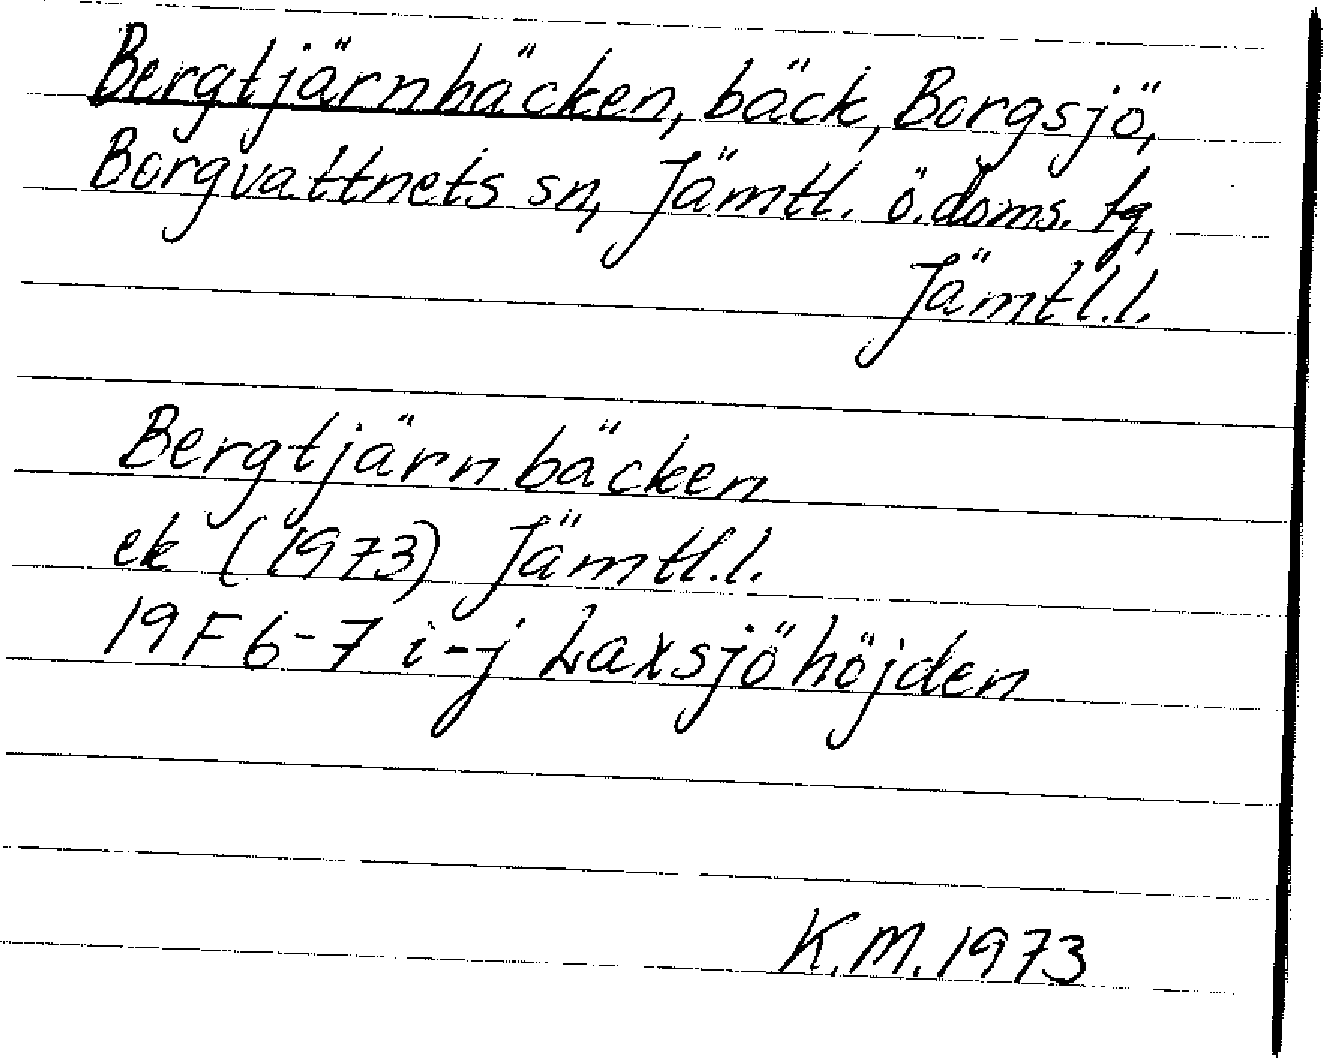 Bergtjärnbäcken, bäck, Borgsjö,
Borgvattnets sn, Jämtl. ö. doms. tg,
Jämtl.l.
Bergtjärnbäcken
ek (1973) Jämtl.l.
19F 6-7 i-j Laxsjöhöjden
K.M. 1973